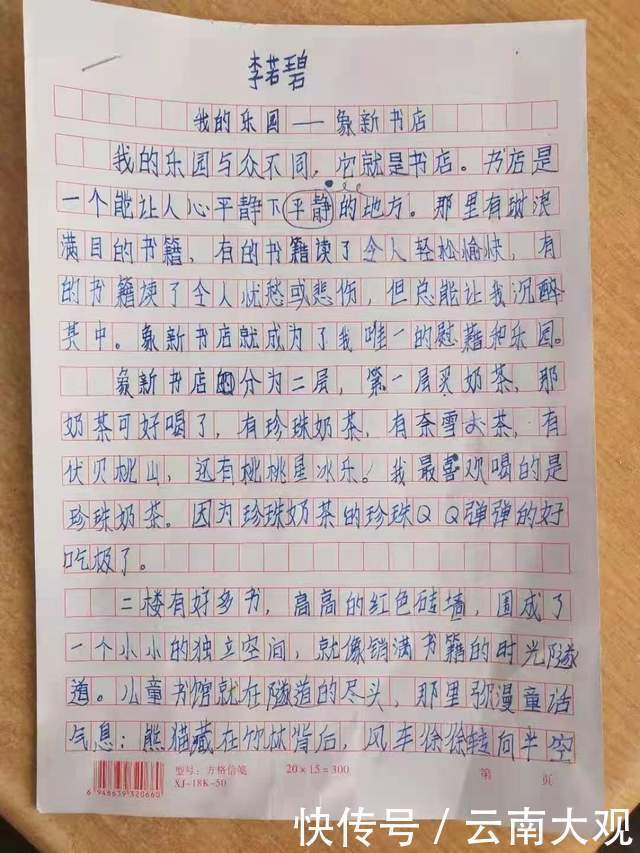 李若碧
我的乐园——象新书店
我的乐园与众不同，它就是书店。书店是
一个能让人心平静下平静的地方。那里有琳浪
满目的书籍，有的书籍读了令人轻松愉快，有
的书籍读了令人忧愁或悲伤，但总能让我沉醉
其中。象新书店就成为了我唯一的慰藉和乐园。
象新书店的分为二层，第一层买奶茶，那
奶茶可好喝了，有珍珠奶茶，有奈雪冰茶，有
伏贝桃山，还有桃桃星冰乐。我最喜欢喝的是
珍珠奶茶。因为珍珠奶茶的珍珠QQ弹弹的好
吃极了。
二楼有好多书，高高的红色砖墙，围成了
一个小小的独立空间，就像销满书籍的时光隧
道。儿童书馆就在隧道的尽头，那里弥漫童话
气息：熊猫藏在竹林背后，风车徐徐转向半空
6948639320660
型号：方格信笺
XJ-18K-50
20×15=300
第 页
快传号/云南大观